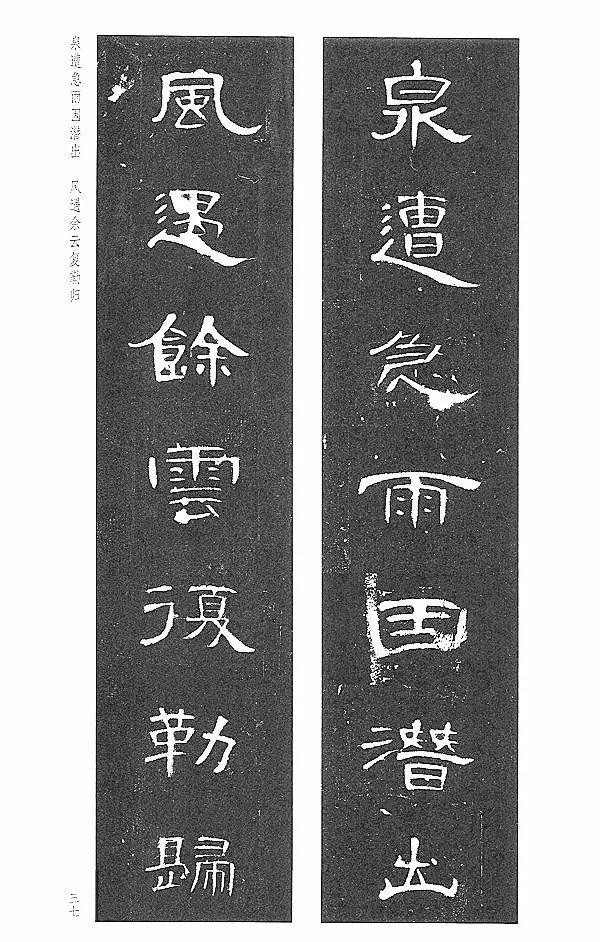 泉遭急雨因潜出
風遇餘雲復勒歸
泉遭急雨因潜出　风遇余云复勒归
三七